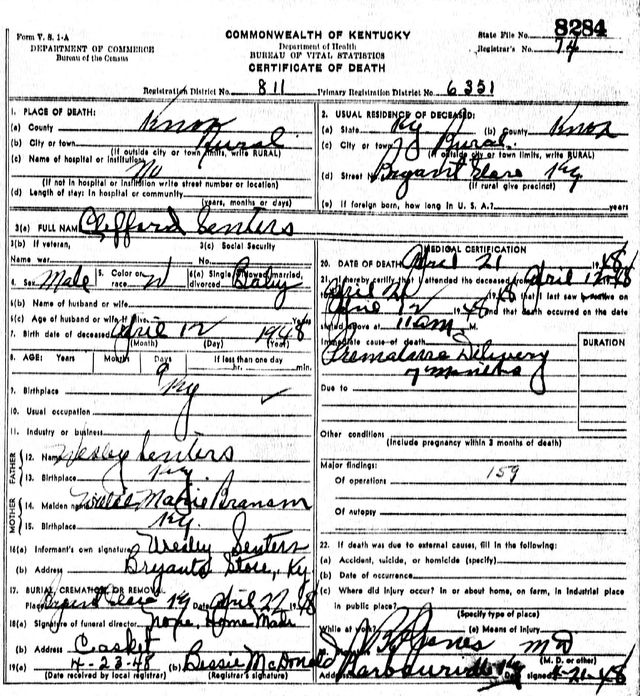 Form V. S. 1-A
DEPARTMENT OF COMMERCE
Bureau of the Census
COMMONWEALTH OF KENTUCKY
Department of Health
BUREAU OF VITAL STATISTICS
CERTIFICATE OF DEATH
State File No. 8284
Registrar's No. 74
Registration District No. 811 Primary Registration District No. 6351
1. PLACE OF DEATH:
(a) County Knox
(b) City or town Rural
(If outside city or town limits, write RURAL)
(c) Name of hospital or institution: No
(If not in hospital or institution write street number or location)
(d) Length of stay: In hospital or community
(years, months or days)
2. USUAL RESIDENCE OF DECEASED:
(a) State Ky (b) County Knox
(c) City or town Rural
(If outside city or town limits, write RURAL)
(d) Street No. Bryant Store Ky
(If rural give precinct)
(e) If foreign born, how long in U. S. A.? years
3(a) FULL NAME Clifford Senters
3(b) If veteran, 3(c) Social Security
Name war No.
4. Sex Male 5. Color or race W 6(a) Single, widowed, married, divorced Baby
6(b) Name of husband or wife
6(c) Age of husband or wife if alive Years
7. Birth date of deceased April 12 1948
(Month) (Day) (Year)
8. AGE: Years Months Days If less than one day
9 hr. min.
9. Birthplace Ky
10. Usual occupation
11. Industry or business
FATHER
12. Name Wesley Senters
13. Birthplace Ky.
MOTHER
14. Maiden name Marie Branam
15. Birthplace Ky.
16(a) Informant's own signature Wesley Senters
(b) Address Bryants Store, Ky
17. BURIAL, CREMATION, OR REMOVAL
Place Bryant Store Ky Date April 22 1948
18(a) Signature of funeral director None, Home Made
(b) Address Casket
19(a) 4-23-48 (b) Bessie McDonald
(Date received by local registrar) (Registrar's signature)
MEDICAL CERTIFICATION
20. DATE OF DEATH April 21 1948
21. I hereby certify that I attended the deceased from April 12 1948
April 21 1948 that I last saw alive on
April 12 1948 and that death occurred on the date
stated above at 11 am M.
Immediate cause of death DURATION
Premature Delivery
7 months
Due to
Other conditions
(Include pregnancy within 3 months of death)
Major findings: 159
Of operations
Of autopsy
22. If death was due to external causes, fill in the following:
(a) Accident, suicide, or homicide (specify)
(b) Date of occurrence
(c) Where did injury occur? In or about home, on farm, in industrial place
in public place?
(Specify type of place)
While at work? (e) Means of injury
Jones MD
(M. D. or other)
Address Barbourville Ky signed 4-21-48